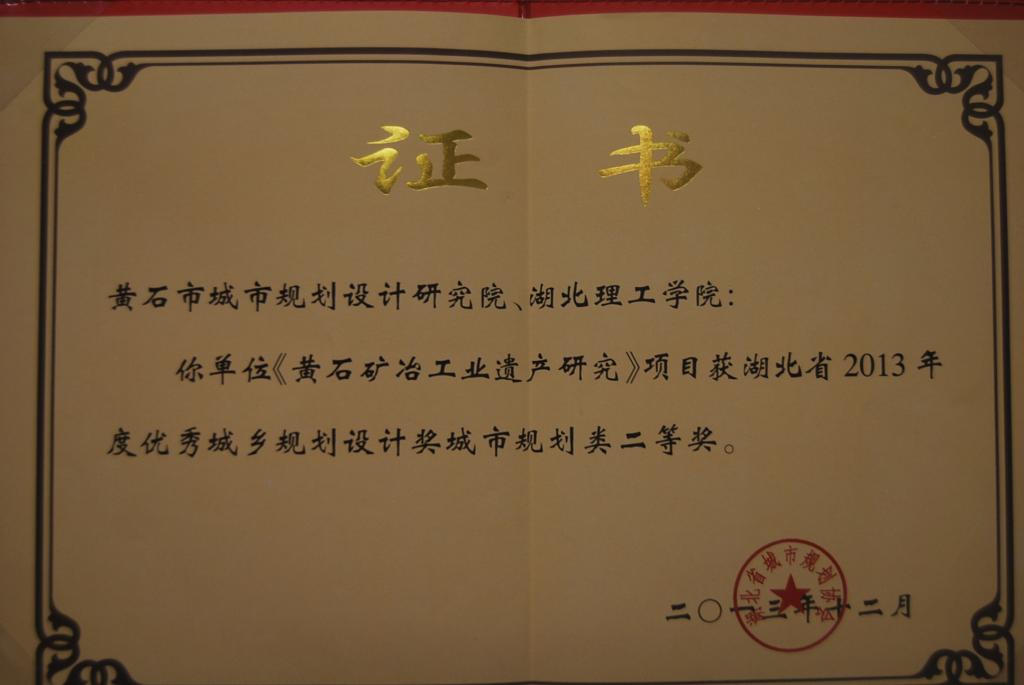 证书
黄石市城市规划设计研究院、湖北理工学院：
你单位《黄石矿冶工业遗产研究》项目获湖北省2013年
度优秀城乡规划设计奖城市规划类二等奖。
湖北省城市规划协会
二〇一三年十二月